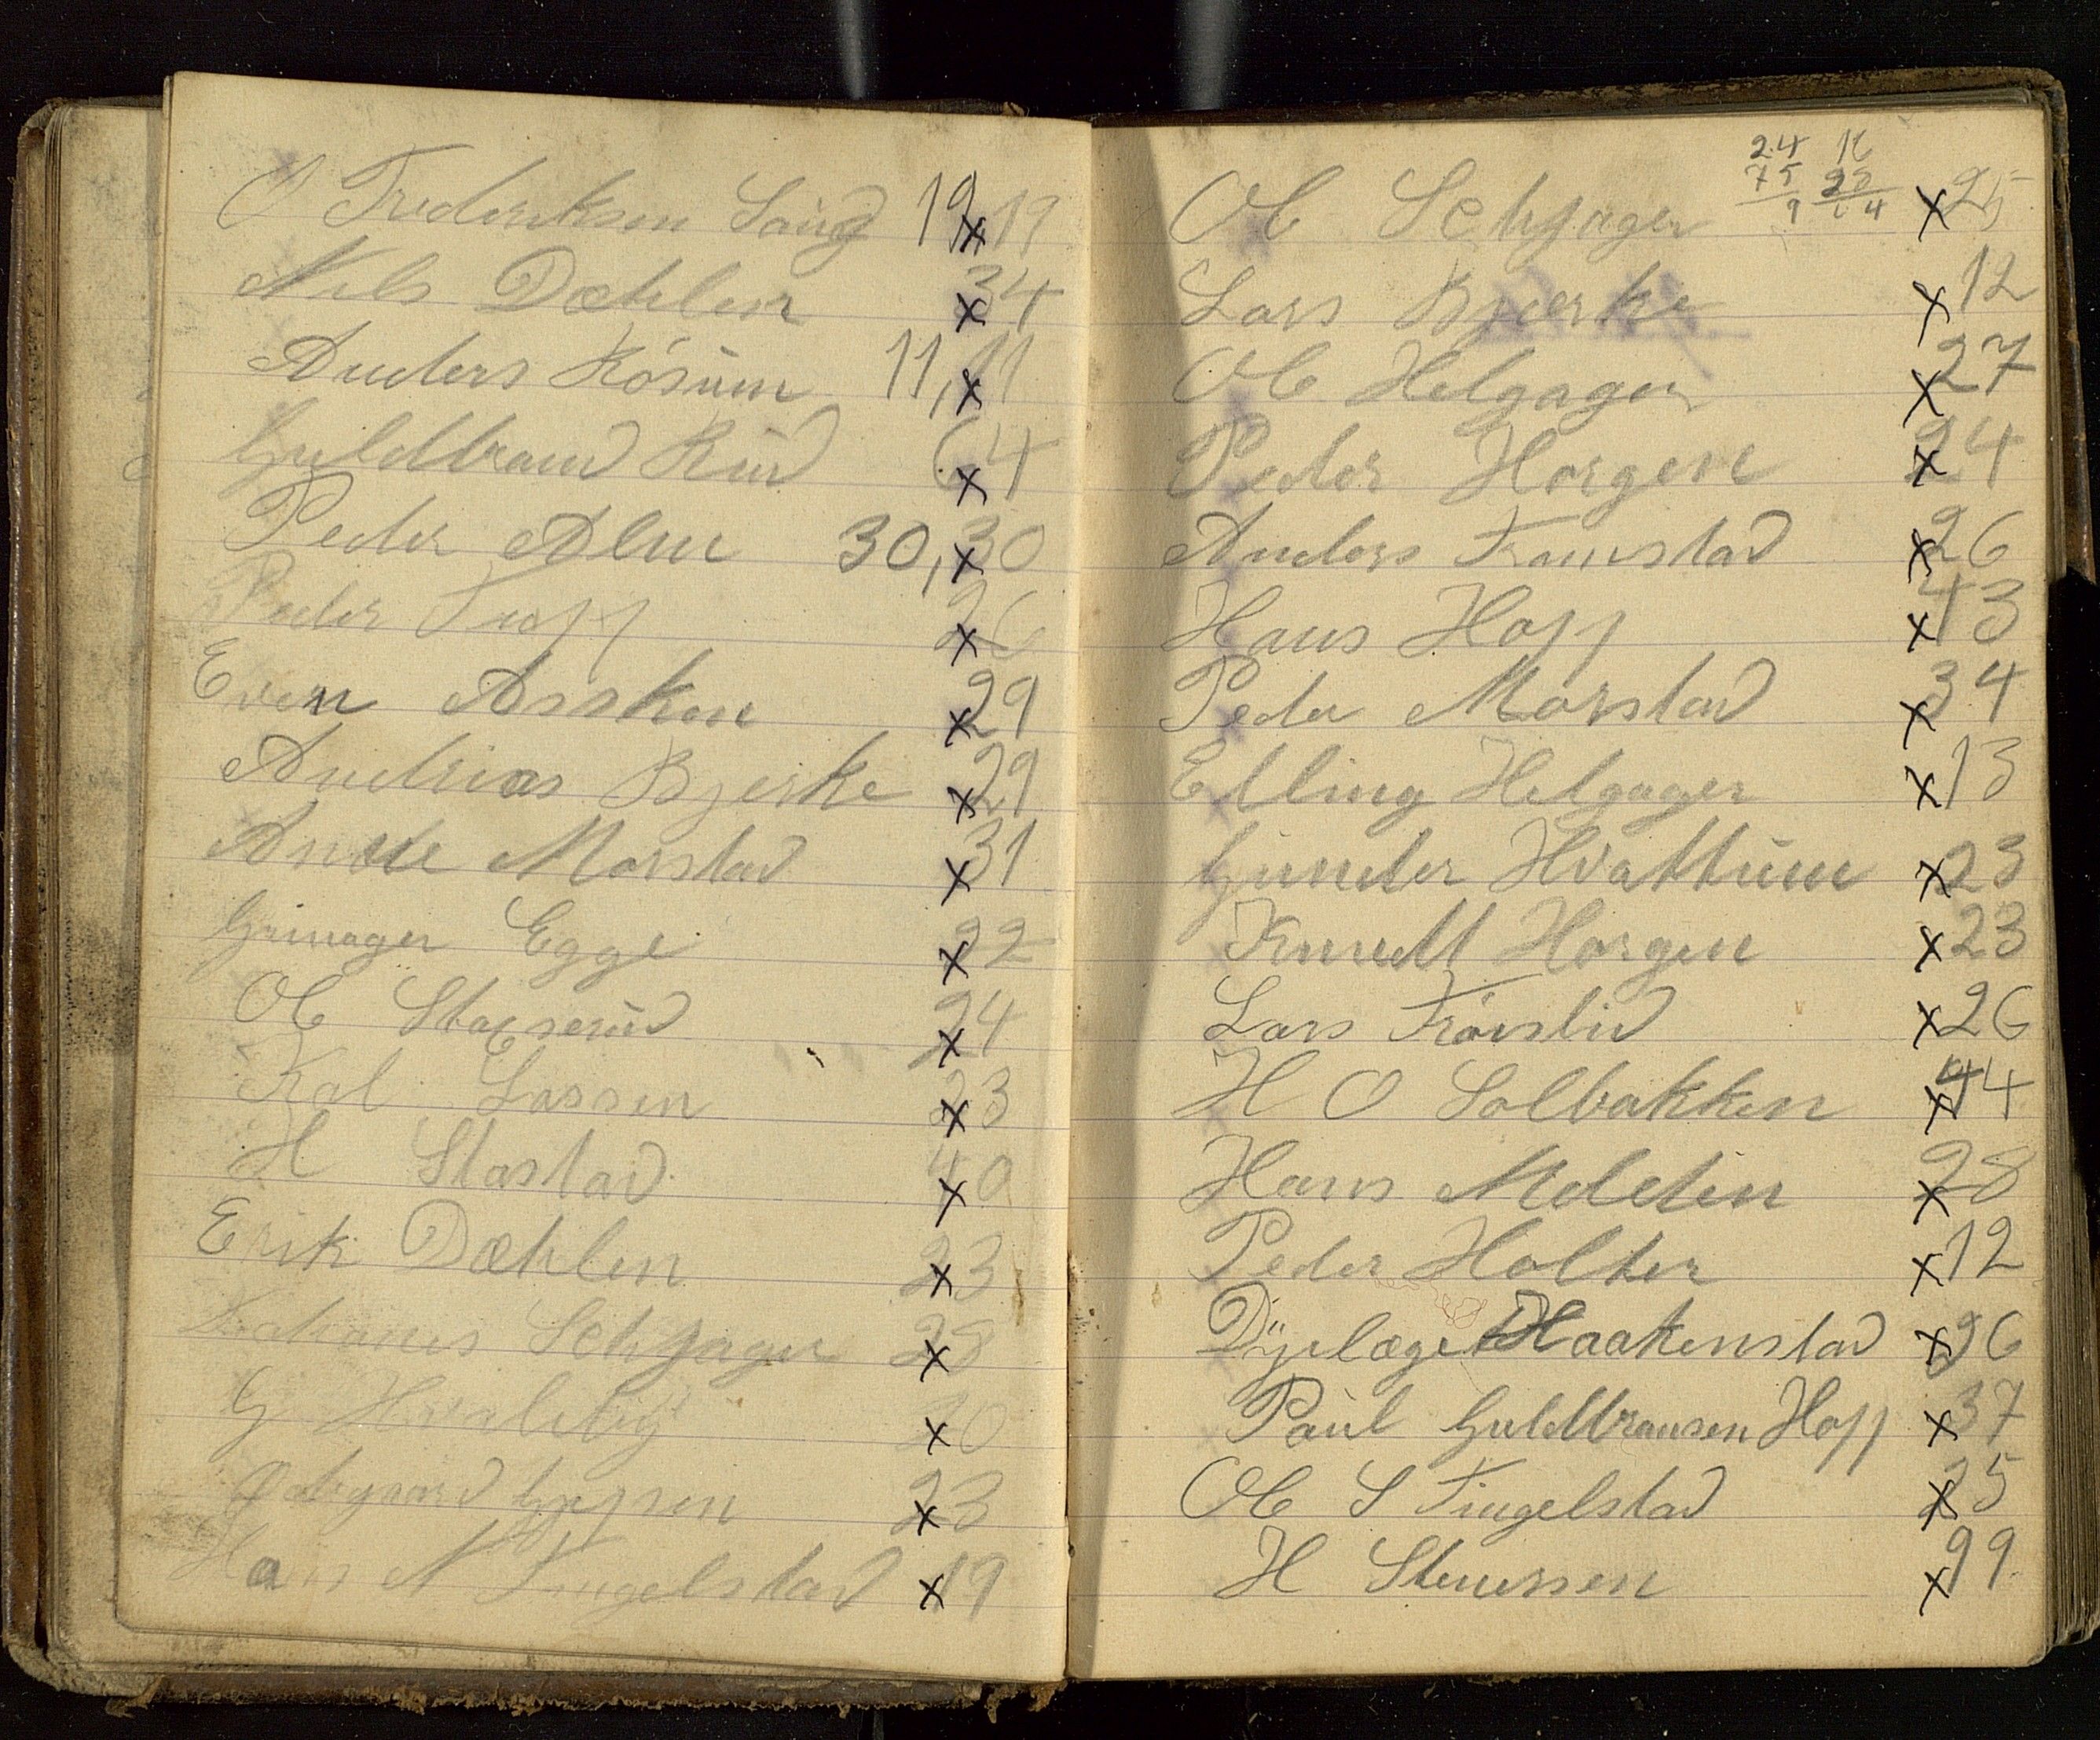 O Frederiksen Saug 19 x 19
Nils Dæhlen x 34
Anders Røsum 11, x 11
Guldbrand Rud x 64
Peder Alm 30, x 30
Peder Topp x 26
Even Assken x 29
Andreas Bjerke x 29
Anne Morstad x 31
Grinager Egge x 22
Ole Stagserud x 24
Kal Lassen x 23
H Stastad x 40
Erik Dæhlen x 33
Johannes Schjager x 28
G Hvaleby x 20
x 23
Hans N Tingelstad x 19
24 16
75 28
9 4
Ole Schjager x 25
Lars Bjerke x 12
Ole Helgager x 27
Peder Horgen x 24
Anders Framstad x 26
Hans Hopp x 43
Peder Morstad x 34
Elling Helgager x 13
Gunder Hvattum x 23
Knudt Horgen x 23
Lars Frøislid x 26
H O Solbakken x 44
Hans Molden x 28
Peder Holter x 12
Dyrlæge Haakenstad x 96
Paul Guldbransen Hopp x 37
Ole S Tingelstad x 25
H Stenersen x 99